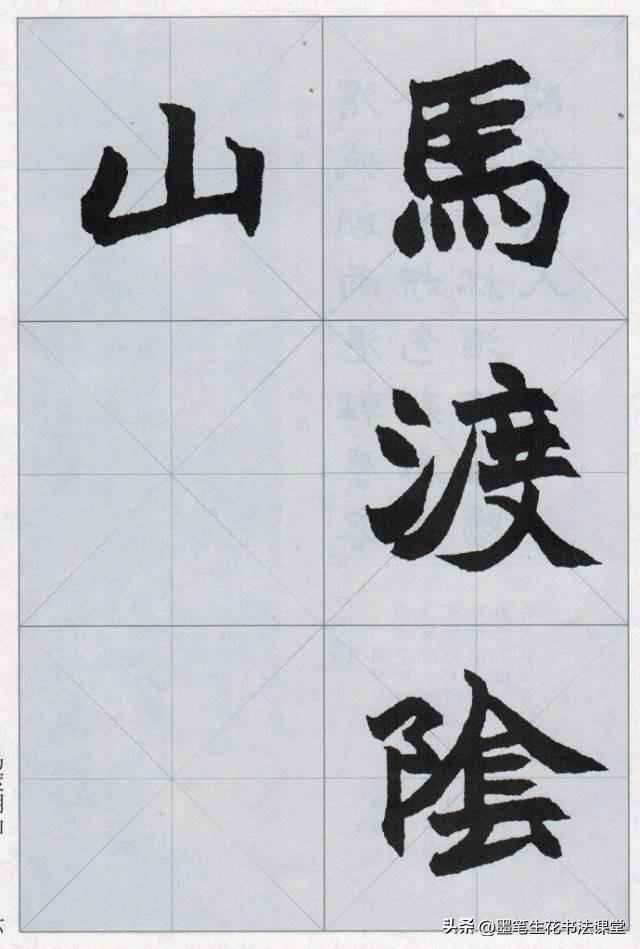 馬渡陰
山
头条 @墨笔生花书法课堂